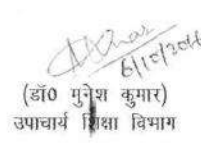 6/10/2016
(डॉ0 मुनेश कुमार)
उपाचार्य शिक्षा विभाग